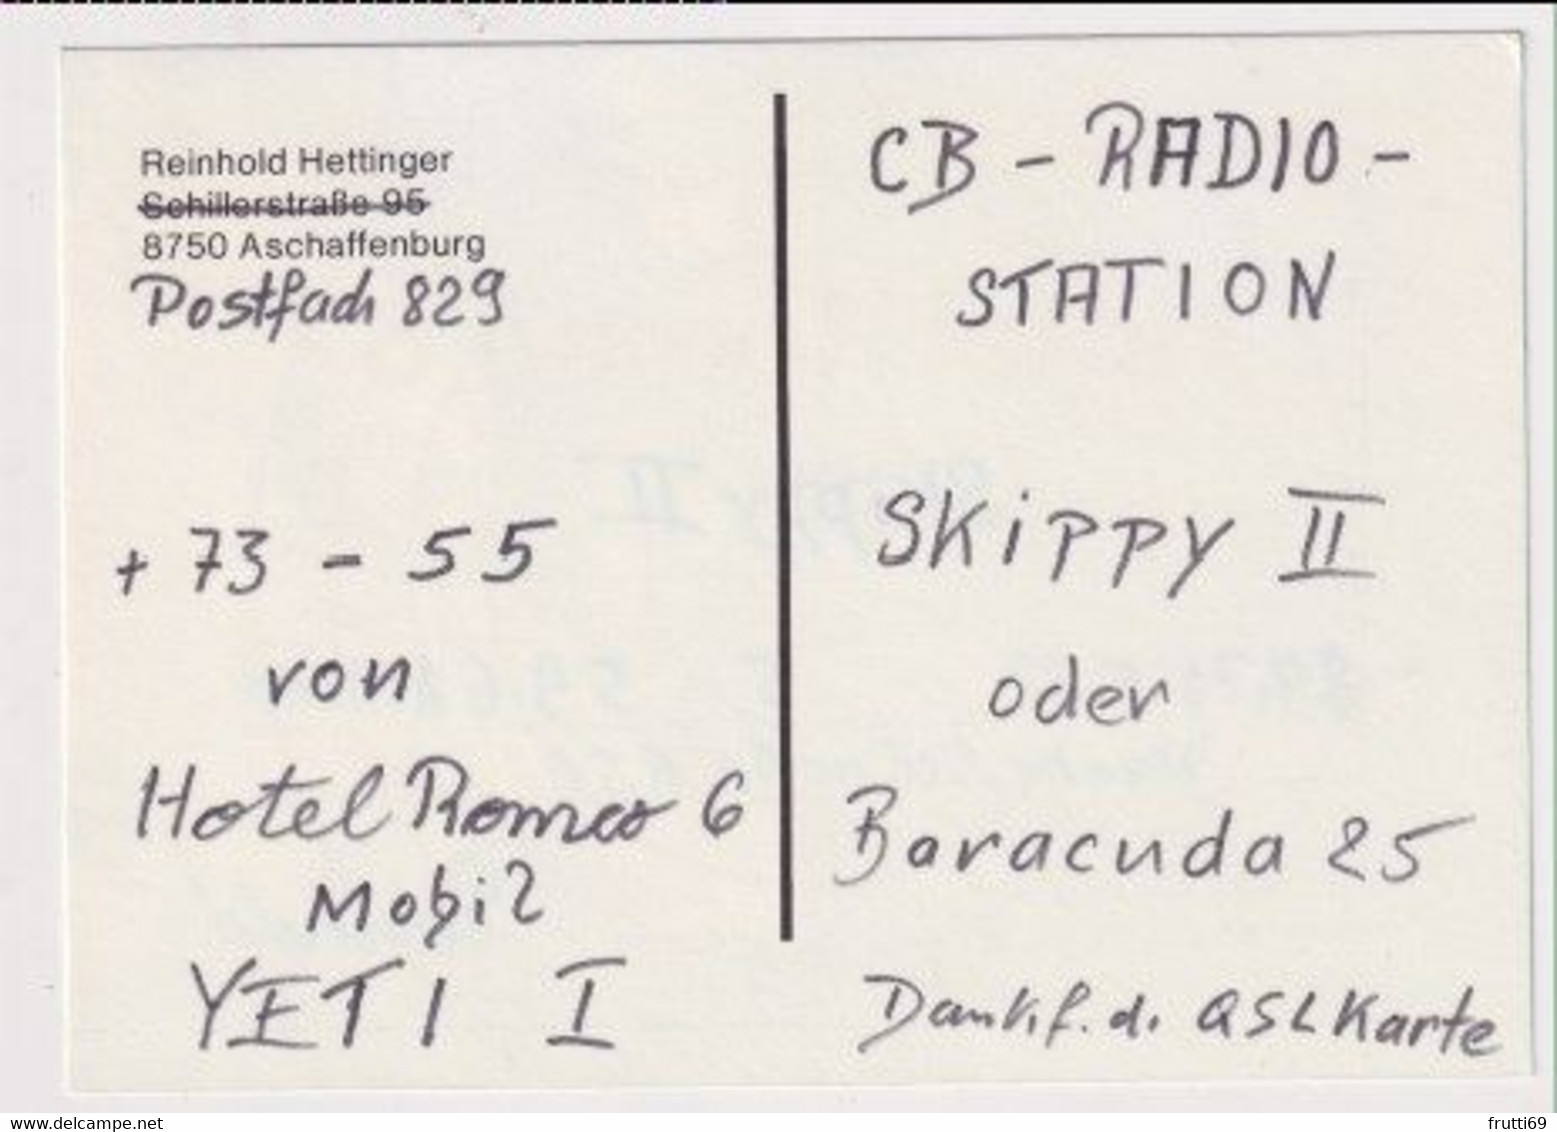 Reinhold Hettinger
Schillerstraße 95
8750 Aschaffenburg
Postfach 829
+ 73 - 55
von
Hotel Romeo 6
Mobil
YETI I
CB - RADIO -
STATION
SKiPPY II
oder
Baracuda 25
Dank f. d. QSL Karte
www.delcampe.net
frutti69